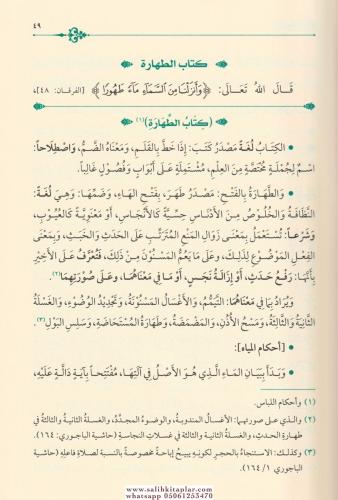 ٤٩
كتاب الطهارة
قَالَ اللهُ تَعَالَى: ﴿وَأَنزَلْنَا مِنَ السَّمَاءِ مَاءً طَهُورًا﴾ [الفرقان: ٤٨]،
(كِتَابُ الطَّهَارَةِ)(١)
• الكِتَابُ لُغَةً مَصْدَرُ كَتَبَ: إِذَا خَطَّ بِالقَلَمِ، وَمَعْنَاهُ الضَّمُّ، وَاصْطِلَاحاً:
اسْمٌ لِجُمْلَةٍ مُخْتَصَّةٍ مِنَ العِلْمِ، مُشْتَمِلَةٍ عَلَى أَبْوَابٍ وَفُصُولٍ غَالِباً.
• وَالطَّهَارَةُ بِالفَتْحِ: مَصْدَرُ طَهَرَ، بِفَتْحِ الهَاءِ، وَضَمِّهَا: وَهِيَ لُغَةً:
النَّظَافَةُ وَالخُلُوصُ مِنَ الأَدْنَاسِ حِسِّيَّةً كَالأَنْجَاسِ، أَوْ مَعْنَوِيَّةً كَالعُيُوبِ،
وَشَرْعاً: تُسْتَعْمَلُ بِمَعْنَى زَوَالِ المَنْعِ المُتَرَتِّبِ عَلَى الحَدَثِ وَالخَبَثِ، وَبِمَعْنَى
الفِعْلِ المَوْضُوعِ لِذَلِكَ، وَعَلَى مَا يَعُمُّ المَسْنُونَ مِنْ ذَلِكَ، فَتُعَرَّفُ عَلَى الأَخِيرِ
بِأَنَّهَا: رَفْعُ حَدَثٍ، أَوْ إِزَالَةُ نَجَسٍ، أَوْ مَا فِي مَعْنَاهُمَا، وَعَلَى صُورَتِهِمَا(٢).
وَيُرَادُ بِمَا فِي مَعْنَاهُمَا: التَّيَمُّمُ، وَالأَغْسَالُ المَسْنُونَةُ، وَتَجْدِيدُ الوُضُوءِ، وَالغَسْلَةُ
الثَّانِيَةُ وَالثَّالِثَةُ، وَمَسْحُ الأُذُنِ، وَالمَضْمَضَةُ، وَطَهَارَةُ المُسْتَحَاضَةِ، وَسَلِسِ البَوْلِ(٣).
• [أحكام المياه]:
• وَبَدَأَ بِبَيَانِ المَاءِ الَّذِي هُوَ الأَصْلُ فِي آلَتِهَا، مُفْتَتِحاً بِآيَةٍ دَالَّةٍ عَلَيْهِ،
(١) وأحكام اللباس.
(٢) والذي على صورتهما: الأغسال المندوبة، والوضوء المجدَّد، والغسلة الثانية والثالثة في
طهارة الحدث، والغسلة الثانية والثالثة في غسلات النجاسة (حاشية الباجوري: ١٦٤).
(٣) وكذلك: الاستنجاء بالحجر لكونه يبيح إباحة مخصوصة بالنسبة لصلاة فاعله (حاشية
الباجوري ١/ ١٦٤).
www.salihkitaplar.com
whatsapp 05061253470